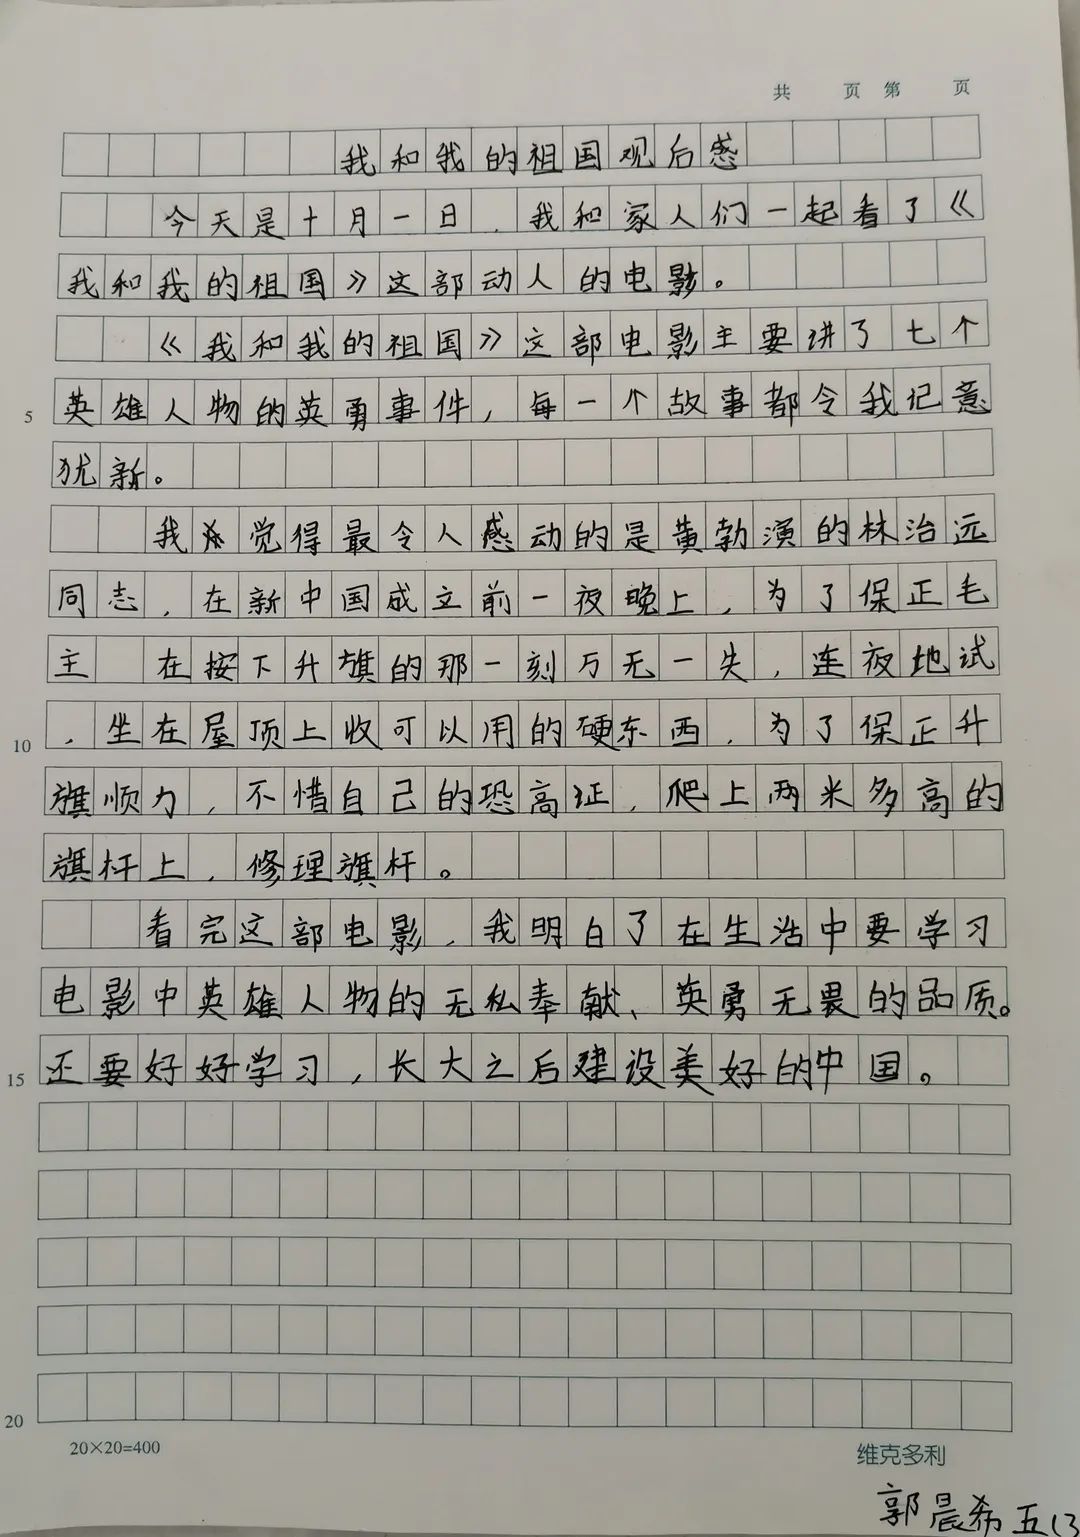 共 页 第 页
我和我的祖国观后感
今天是十月一日,我和家人们一起看了《
我和我的祖国》这部动人的电影。
《我和我的祖国》这部电影主要讲了七个
5 英雄人物的英勇事件,每一个故事都令我记意
犹新。
我觉得最令人感动的是黄勃演的林治远
同志,在新中国成立前一夜晚上,为了保正毛
主 在按下升旗的那一刻万无一失,连夜地试
10 ,坐在屋顶上收可以用的硬东西,为了保正升
旗顺力,不惜自己的恐高证,爬上两米多高的
旗杆上,修理旗杆。
看完这部电影,我明白了在生活中要学习
电影中英雄人物的无私奉献、英勇无畏的品质。
15 还要好好学习,长大之后建设美好的中国。
20
20×20=400 维克多利
郭晨希 五(